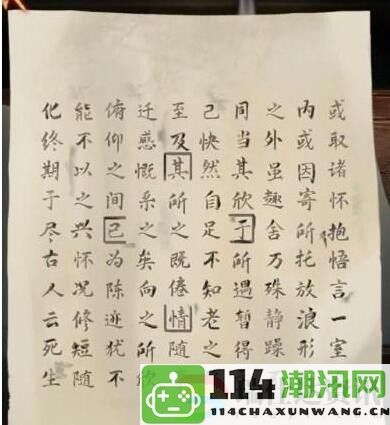 或取诸怀抱悟言一室
内或因寄所托放浪形
之外虽趣舍万殊静躁
同当其欣于所遇暂得
己快然自足不知老之
至及其所之既倦情随
迁感慨系之矣向之所欣
俯仰之间已为陈迹犹不
能不以之兴怀况修短随
化终期于尽古人云死生
114潮讯网
114CHAXUNWANG.CN